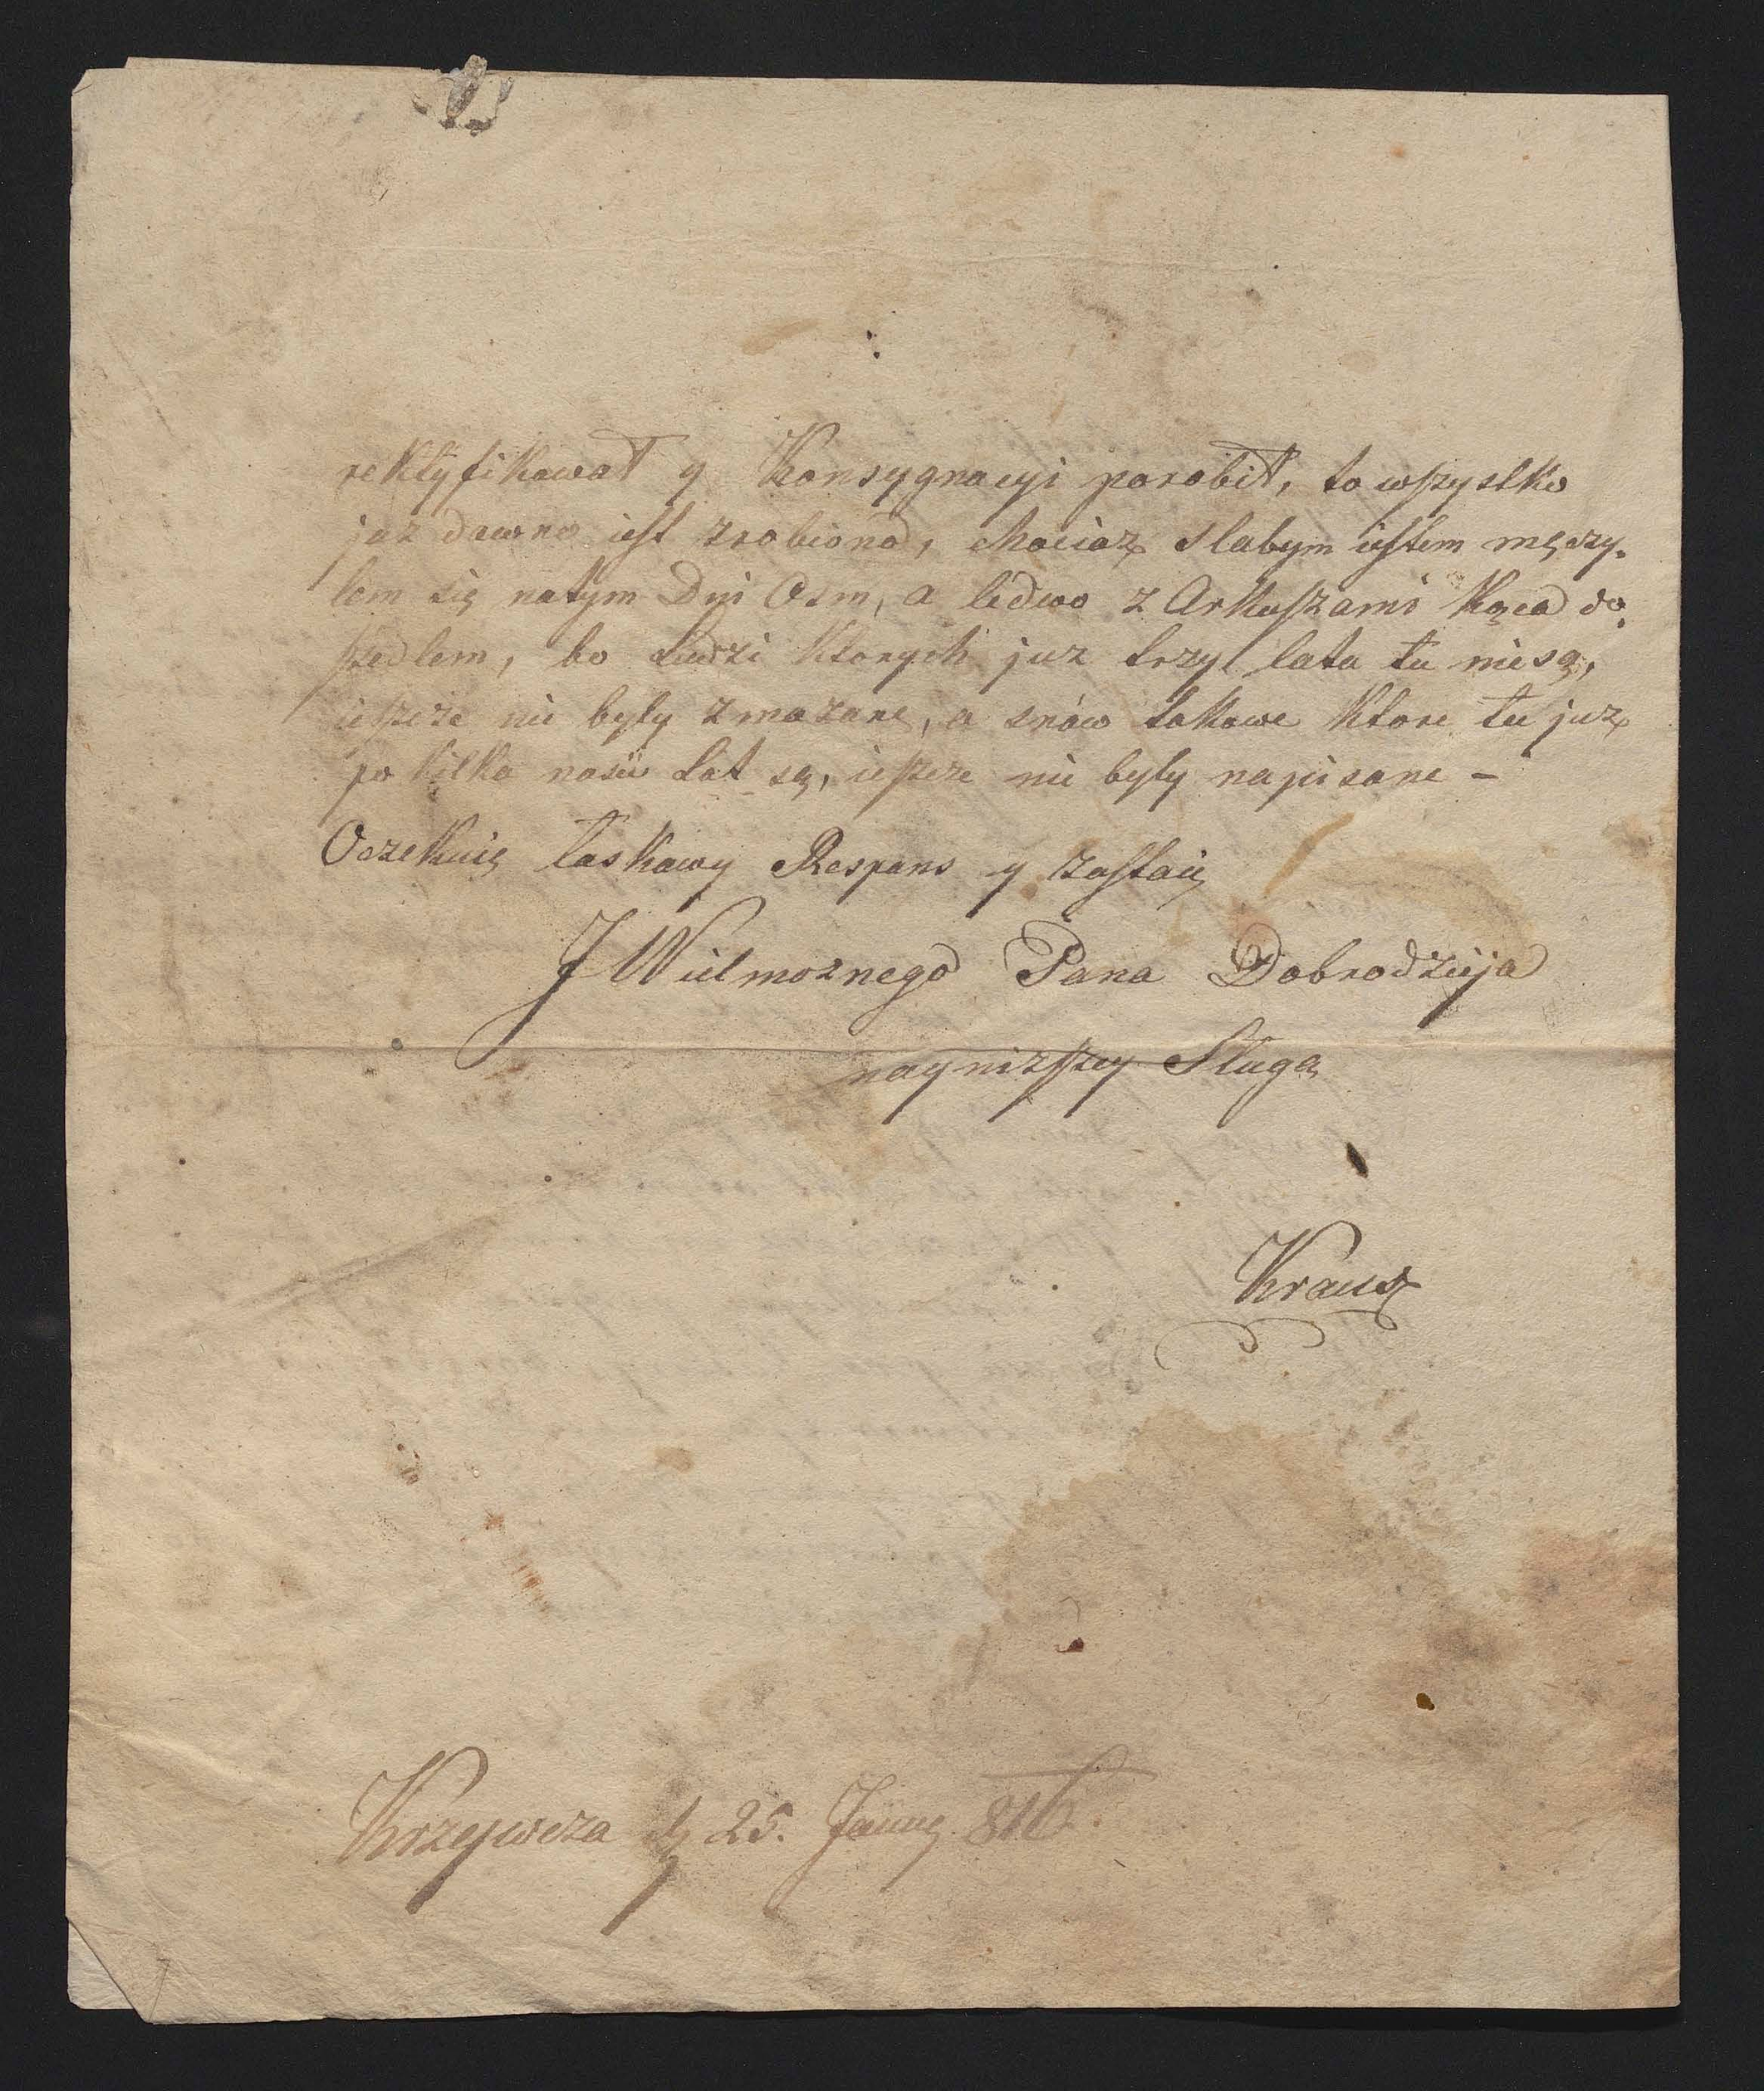 rektyfikował y Konsygnacyi porobił, to wszystko
juz dawno iest zrobiono, chociaz slabym iestem męczy-
lem się natym Dni Osm, a ledwo z Arkuszami Kąca do,
szedlem, bo Ludzi ktorych juz trzy lata tu niesą,
ieszcze nie byly zmazane, a znów takowe ktore tu juz
po kilka naście Lat są, ieszcze nie byly napisane –
Oczekuię łaskawy Respons y zostaię
J Wielmoznego Pana Dobrodzieja
nayniszszey Sługa
Krausz
Krzywcza d 25. Janny 816.